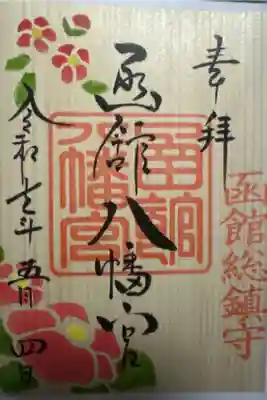 奉拝
函館総鎮守
函館八幡宮
函館八幡宮
令和七年五月四日